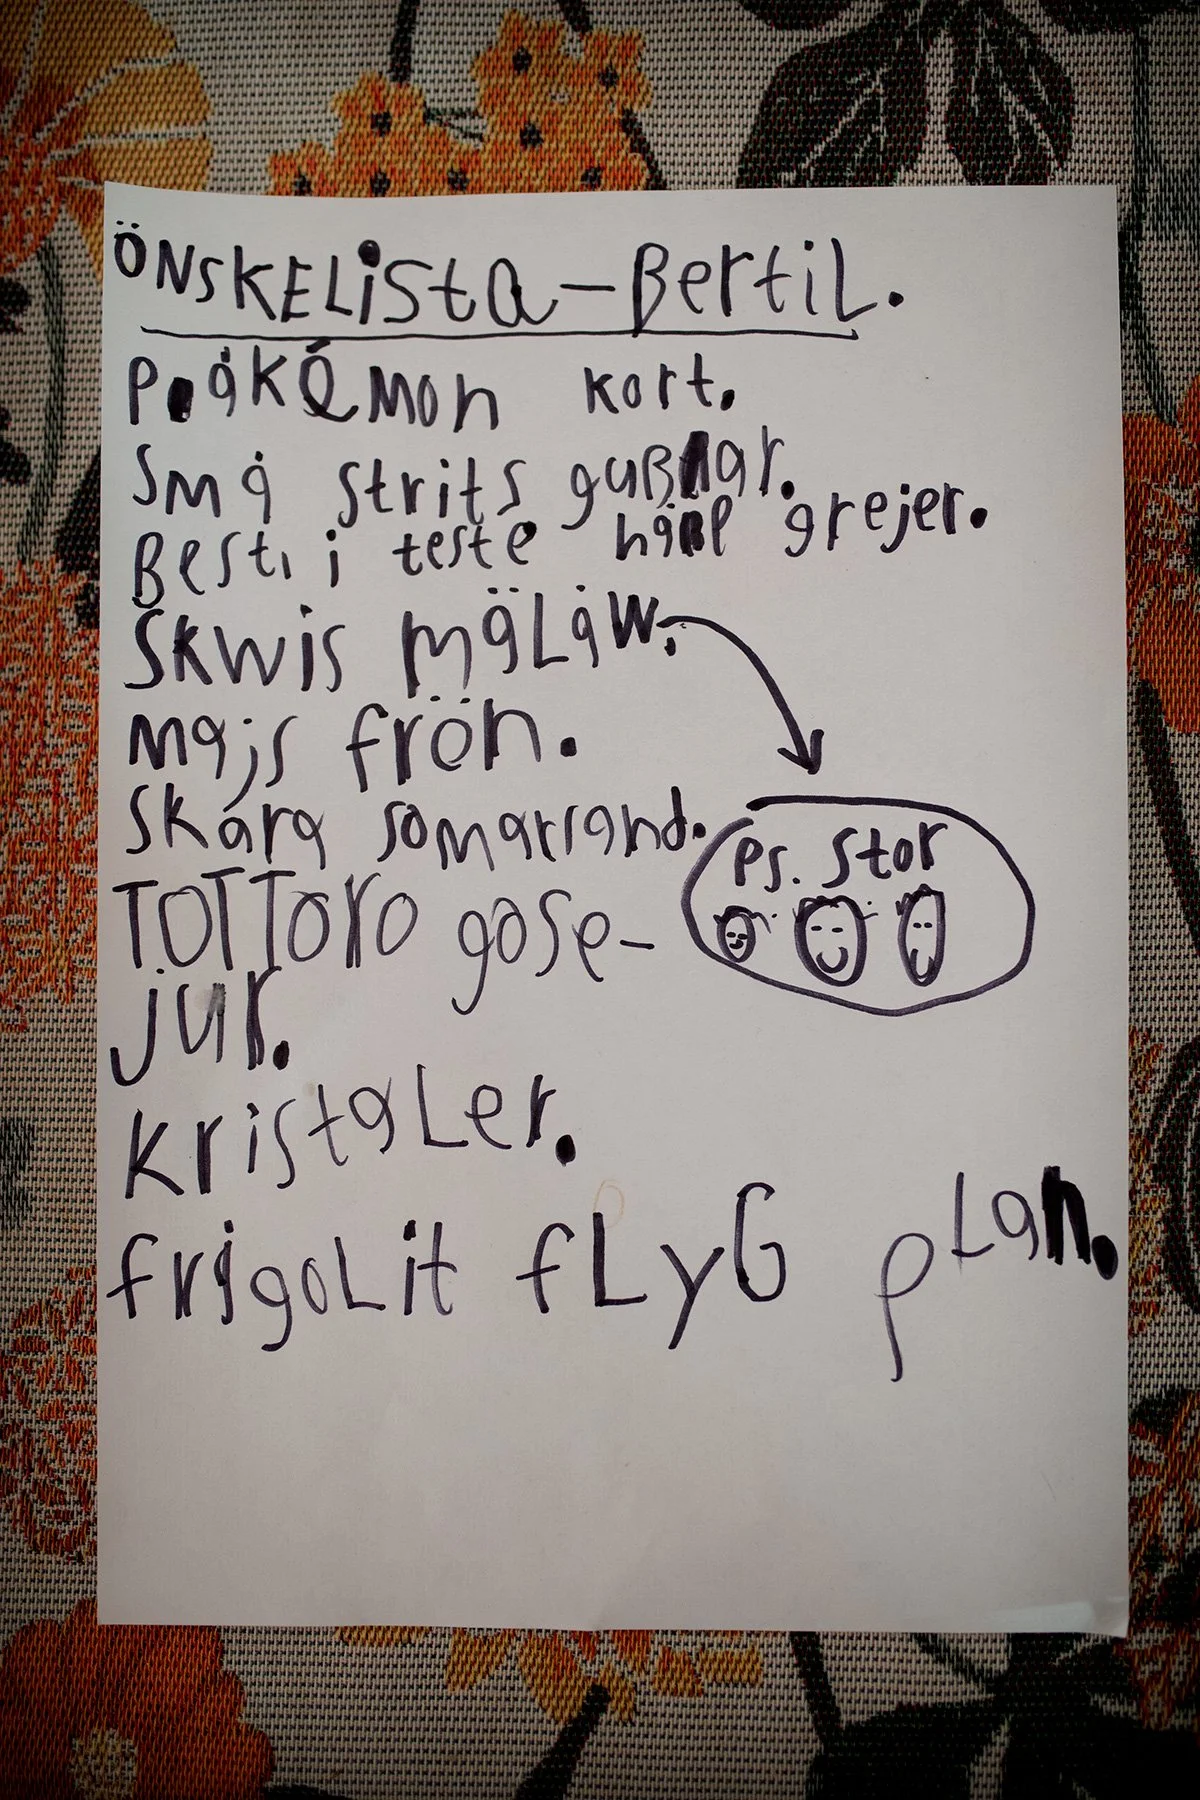 ÖNSKELiSta-BertiL.
PåKÉMon kort.
Små strits guBBar.
Best i teste hänP grejer.
SKWiS MäLåW.
Majs frön.
Skara somarland.
TOTTORO gose-
jur.
KristaLer.
frigoLit fLyG pLan.
Ps. Stor